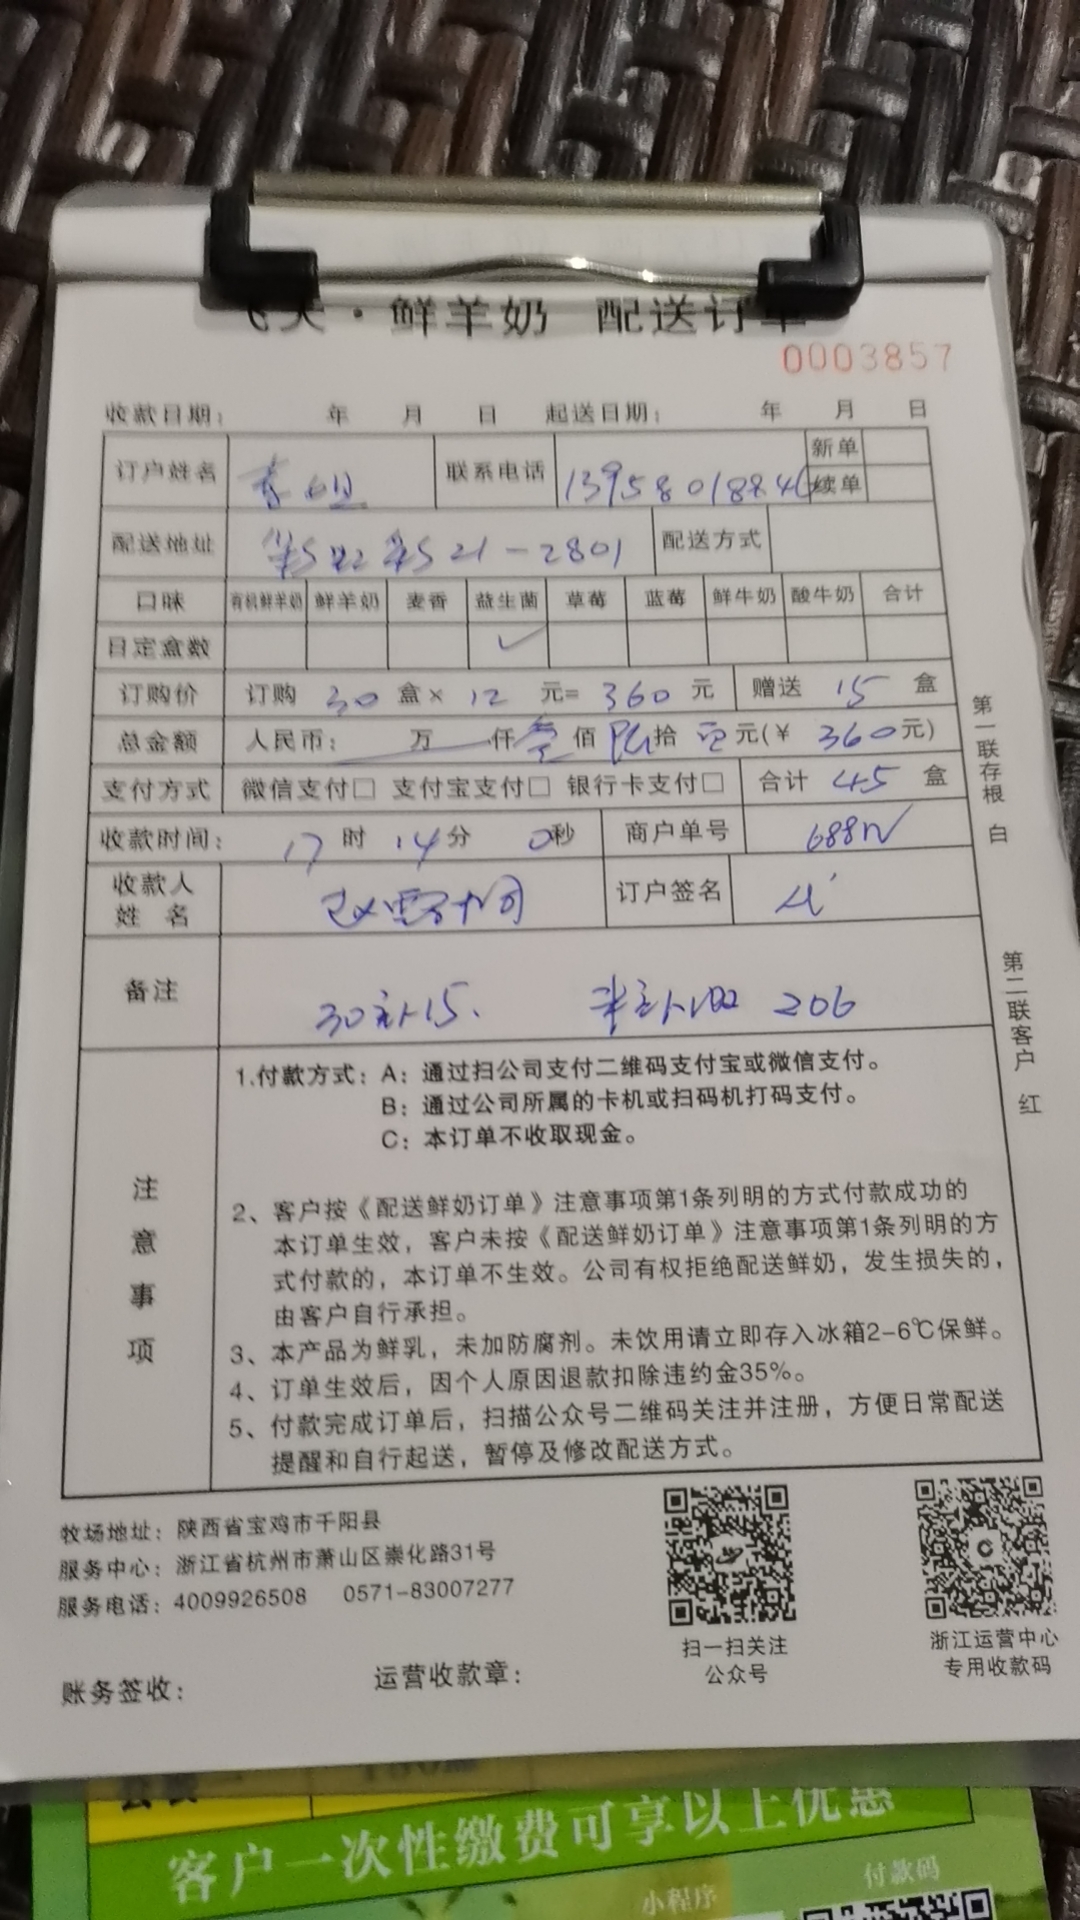 ·鲜羊奶 配送订单
0003857
收款日期: 年 月 日 起送日期: 年 月 日
订户姓名 联系电话 新单
续单
配送地址 21-2801 配送方式
口味 有机鲜羊奶 鲜羊奶 麦香 益生菌 草莓 蓝莓 鲜牛奶 酸牛奶 合计
日定盒数 ✓
订购价 订购 30 盒× 12 元= 360 元 赠送 15 盒
总金额 人民币: 万 仟 叁 佰 陆 拾 元(¥ 360元)
支付方式 微信支付□ 支付宝支付□ 银行卡支付□ 合计 45 盒
收款时间: 17 时 14 分 0秒 商户单号
收款人姓名 订户签名
备注 30 15. 206
注意事项
1.付款方式: A: 通过扫公司支付二维码支付宝或微信支付。
B: 通过公司所属的卡机或扫码机打码支付。
C: 本订单不收取现金。
2、客户按《配送鲜奶订单》注意事项第1条列明的方式付款成功的
本订单生效，客户未按《配送鲜奶订单》注意事项第1条列明的方
式付款的，本订单不生效。公司有权拒绝配送鲜奶，发生损失的，
由客户自行承担。
3、本产品为鲜乳，未加防腐剂。未饮用请立即存入冰箱2-6℃保鲜。
4、订单生效后，因个人原因退款扣除违约金35%。
5、付款完成订单后，扫描公众号二维码关注并注册，方便日常配送
提醒和自行起送，暂停及修改配送方式。
第一联存根 白
第二联客户 红
牧场地址: 陕西省宝鸡市千阳县
服务中心: 浙江省杭州市萧山区崇化路31号
服务电话: 4009926508 0571-83007277
扫一扫关注
公众号
浙江运营中心
专用收款码
账务签收: 运营收款章:
客户一次性缴费可享以上优惠
小程序 付款码